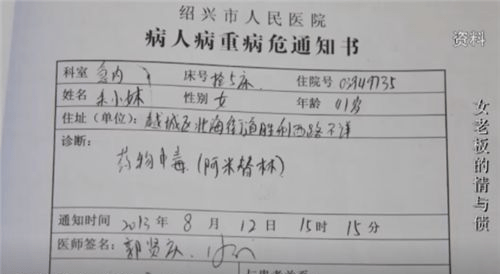 绍兴市人民医院
病人病重病危通知书
资料
科室 急内 床号 抢5床 住院号 03949735
姓名 朱小妹 性别 女 年龄 41岁
住址(单位): 越城区北海街道胜利西路不详
诊断:
药物中毒(阿米替林)
通知时间 2013 年 8 月 12 日 15 时 15 分
医师签名:
女老板的情与债